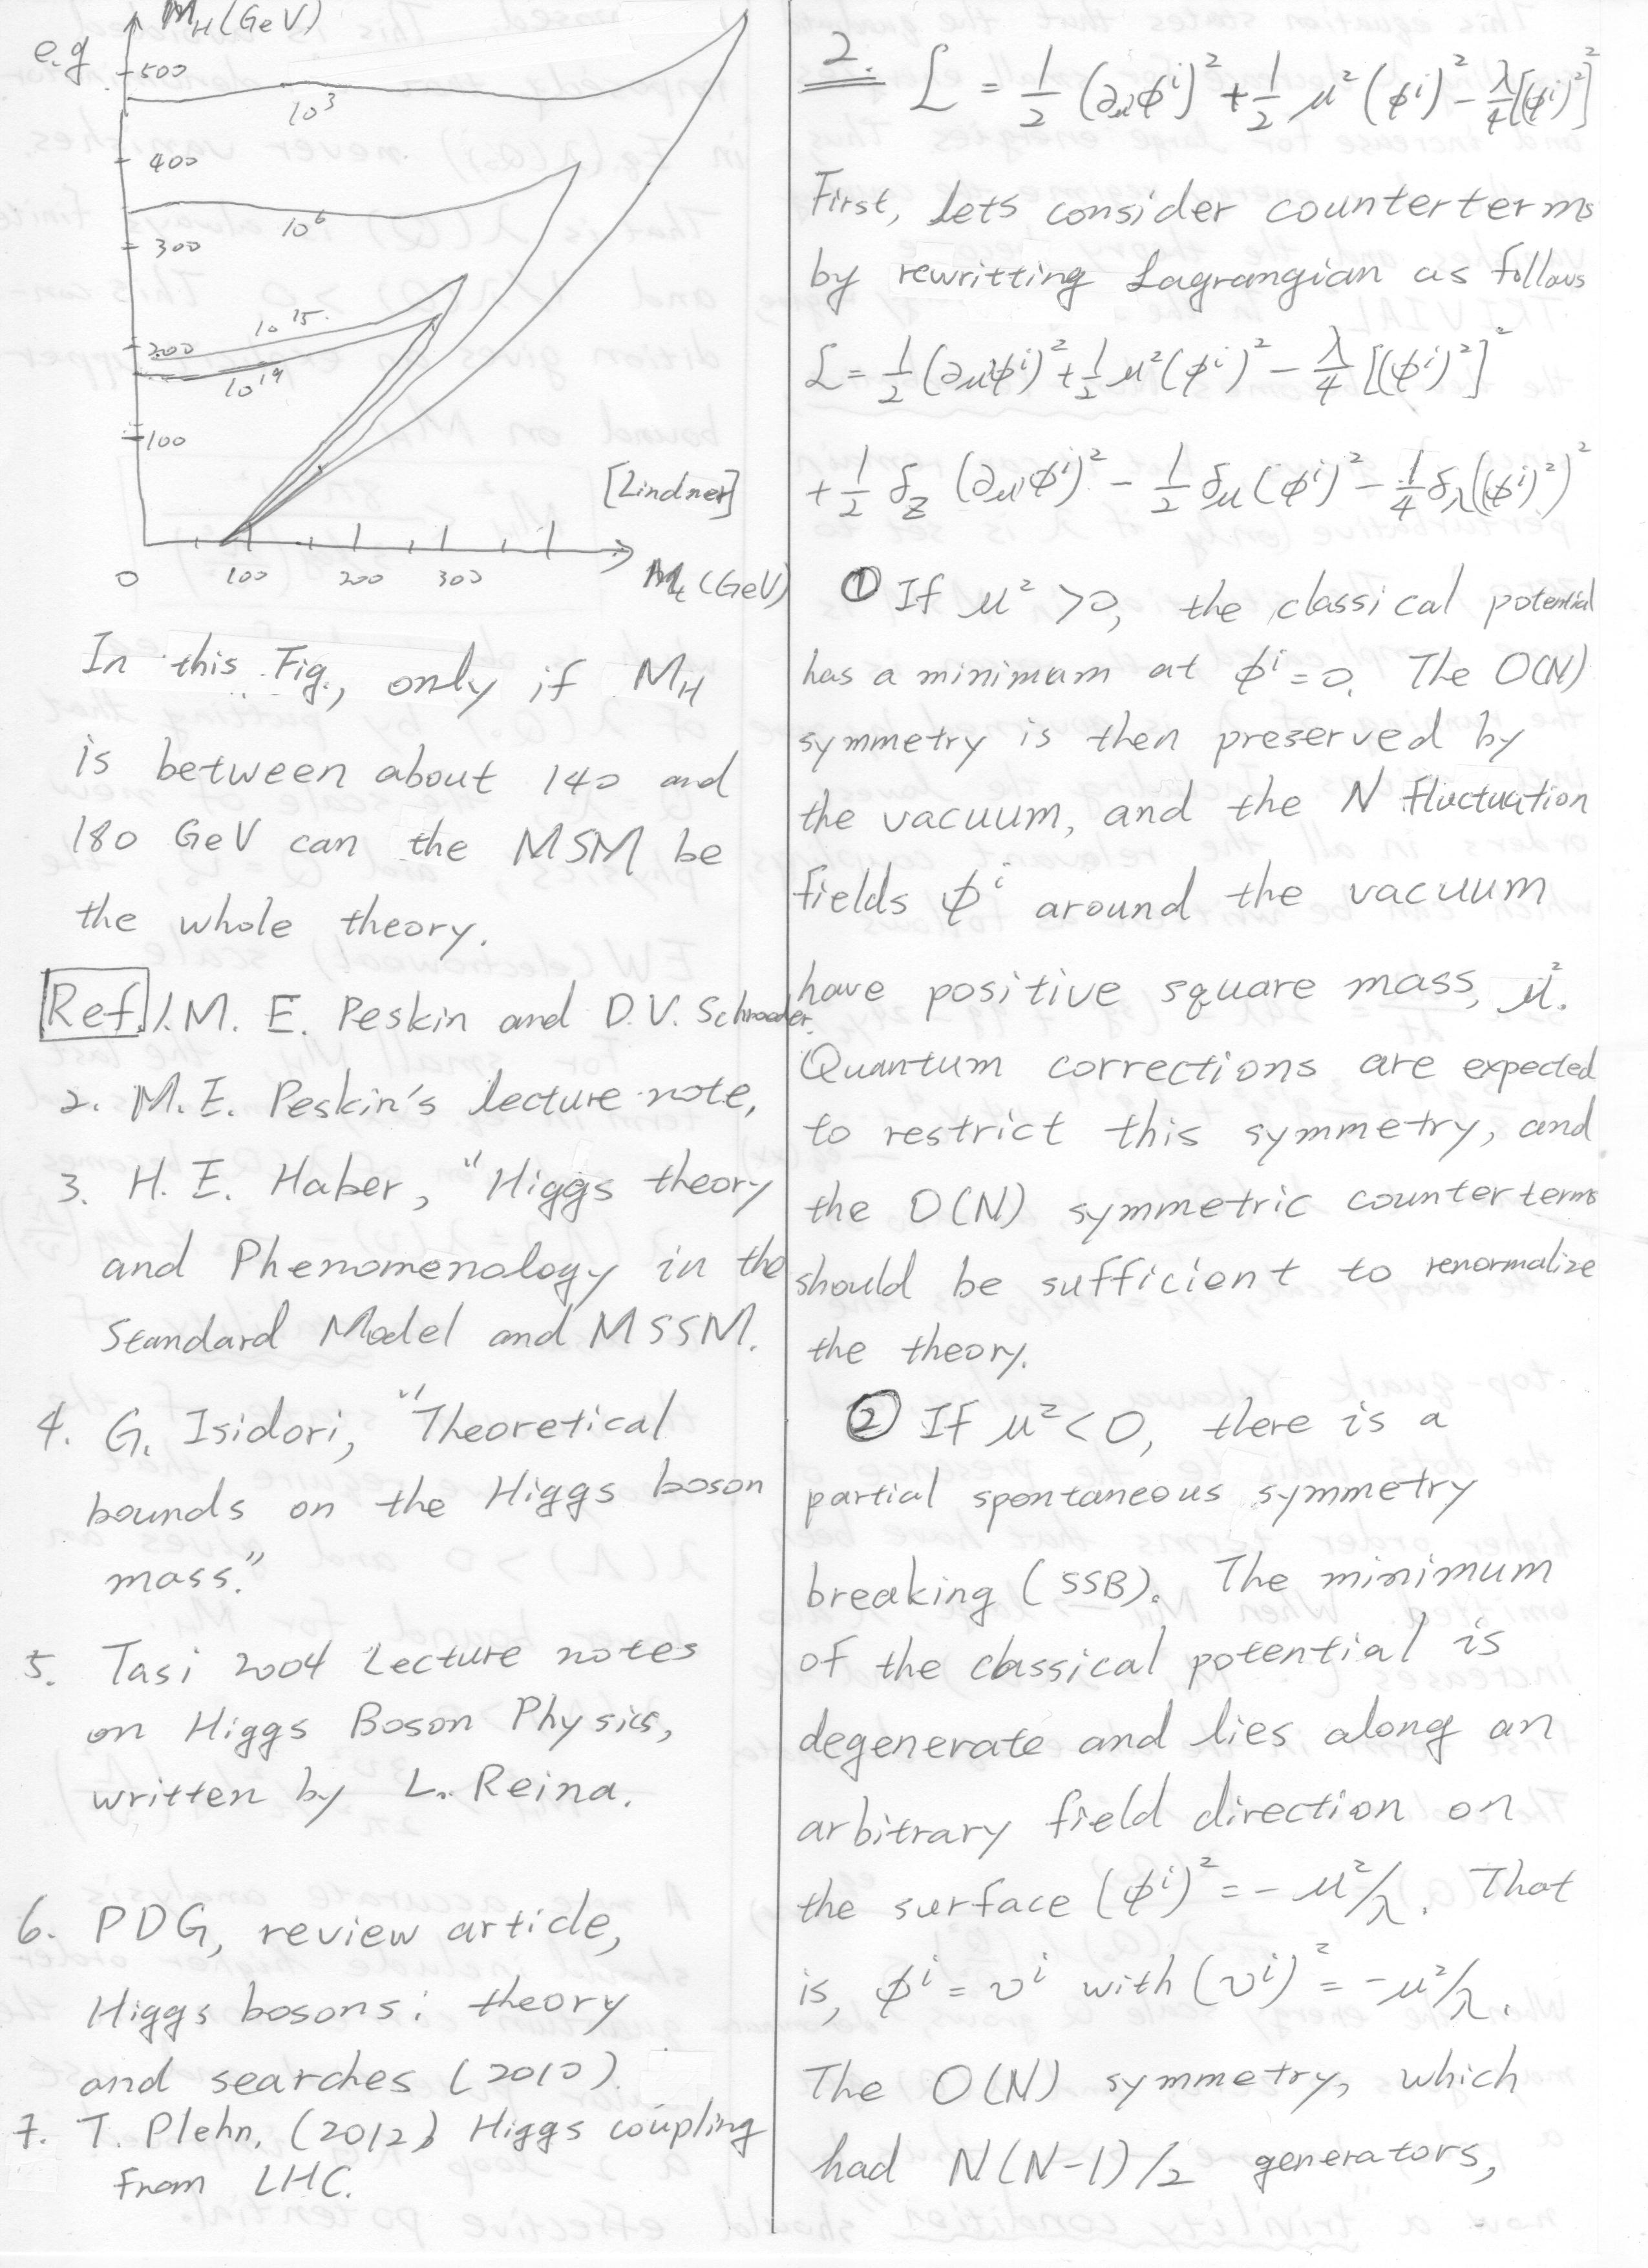 e.g
M_H (GeV)
500
10^3
400
10^6
300
10^15
200
10^19
100
[Lindner]
0 100 200 300 M_t (GeV)
In this Fig., only if M_H
is between about 140 and
180 GeV can the MSM be
the whole theory.
Ref. 1. M. E. Peskin and D.V. Schroeder.
2. M.E. Peskin's lecture note,
3. H. E. Haber, "Higgs theory
and Phenomenology in the
Standard Model and MSSM.
4. G. Isidori, "Theoretical
bounds on the Higgs boson
mass."
5. Tasi 2004 Lecture notes
on Higgs Boson Physics,
written by L. Reina.
6. PDG, review article,
Higgs bosons: theory
and searches (2010).
7. T. Plehn, (2012) Higgs coupling
from LHC.
2. ℒ = 1/2 (∂_μ ϕ^i)^2 + 1/2 μ^2 (ϕ^i)^2 - λ/4 [(ϕ^i)^2]^2
First, lets consider counterterms
by rewritting Lagrangian as follows
ℒ = 1/2 (∂_μ ϕ^i)^2 + 1/2 μ^2 (ϕ^i)^2 - λ/4 [(ϕ^i)^2]^2
+ 1/2 δ_Z (∂_μ ϕ^i)^2 - 1/2 δ_μ (ϕ^i)^2 - 1/4 δ_λ ((ϕ^i)^2)^2
① If μ^2 >0, the classical potential
has a minimum at ϕ^i = 0. The O(N)
symmetry is then preserved by
the vacuum, and the N fluctuation
fields ϕ^i around the vacuum
have positive square mass, μ^2.
Quantum corrections are expected
to restrict this symmetry, and
the O(N) symmetric counter terms
should be sufficient to renormalize
the theory.
② If μ^2 < 0, there is a
partial spontaneous symmetry
breaking (SSB). The minimum
of the classical potential is
degenerate and lies along an
arbitrary field direction on
the surface (ϕ^i)^2 = - μ^2/λ. That
is, ϕ^i = v^i with (v^i)^2 = -μ^2/λ.
The O(N) symmetry, which
had N(N-1)/2 generators,